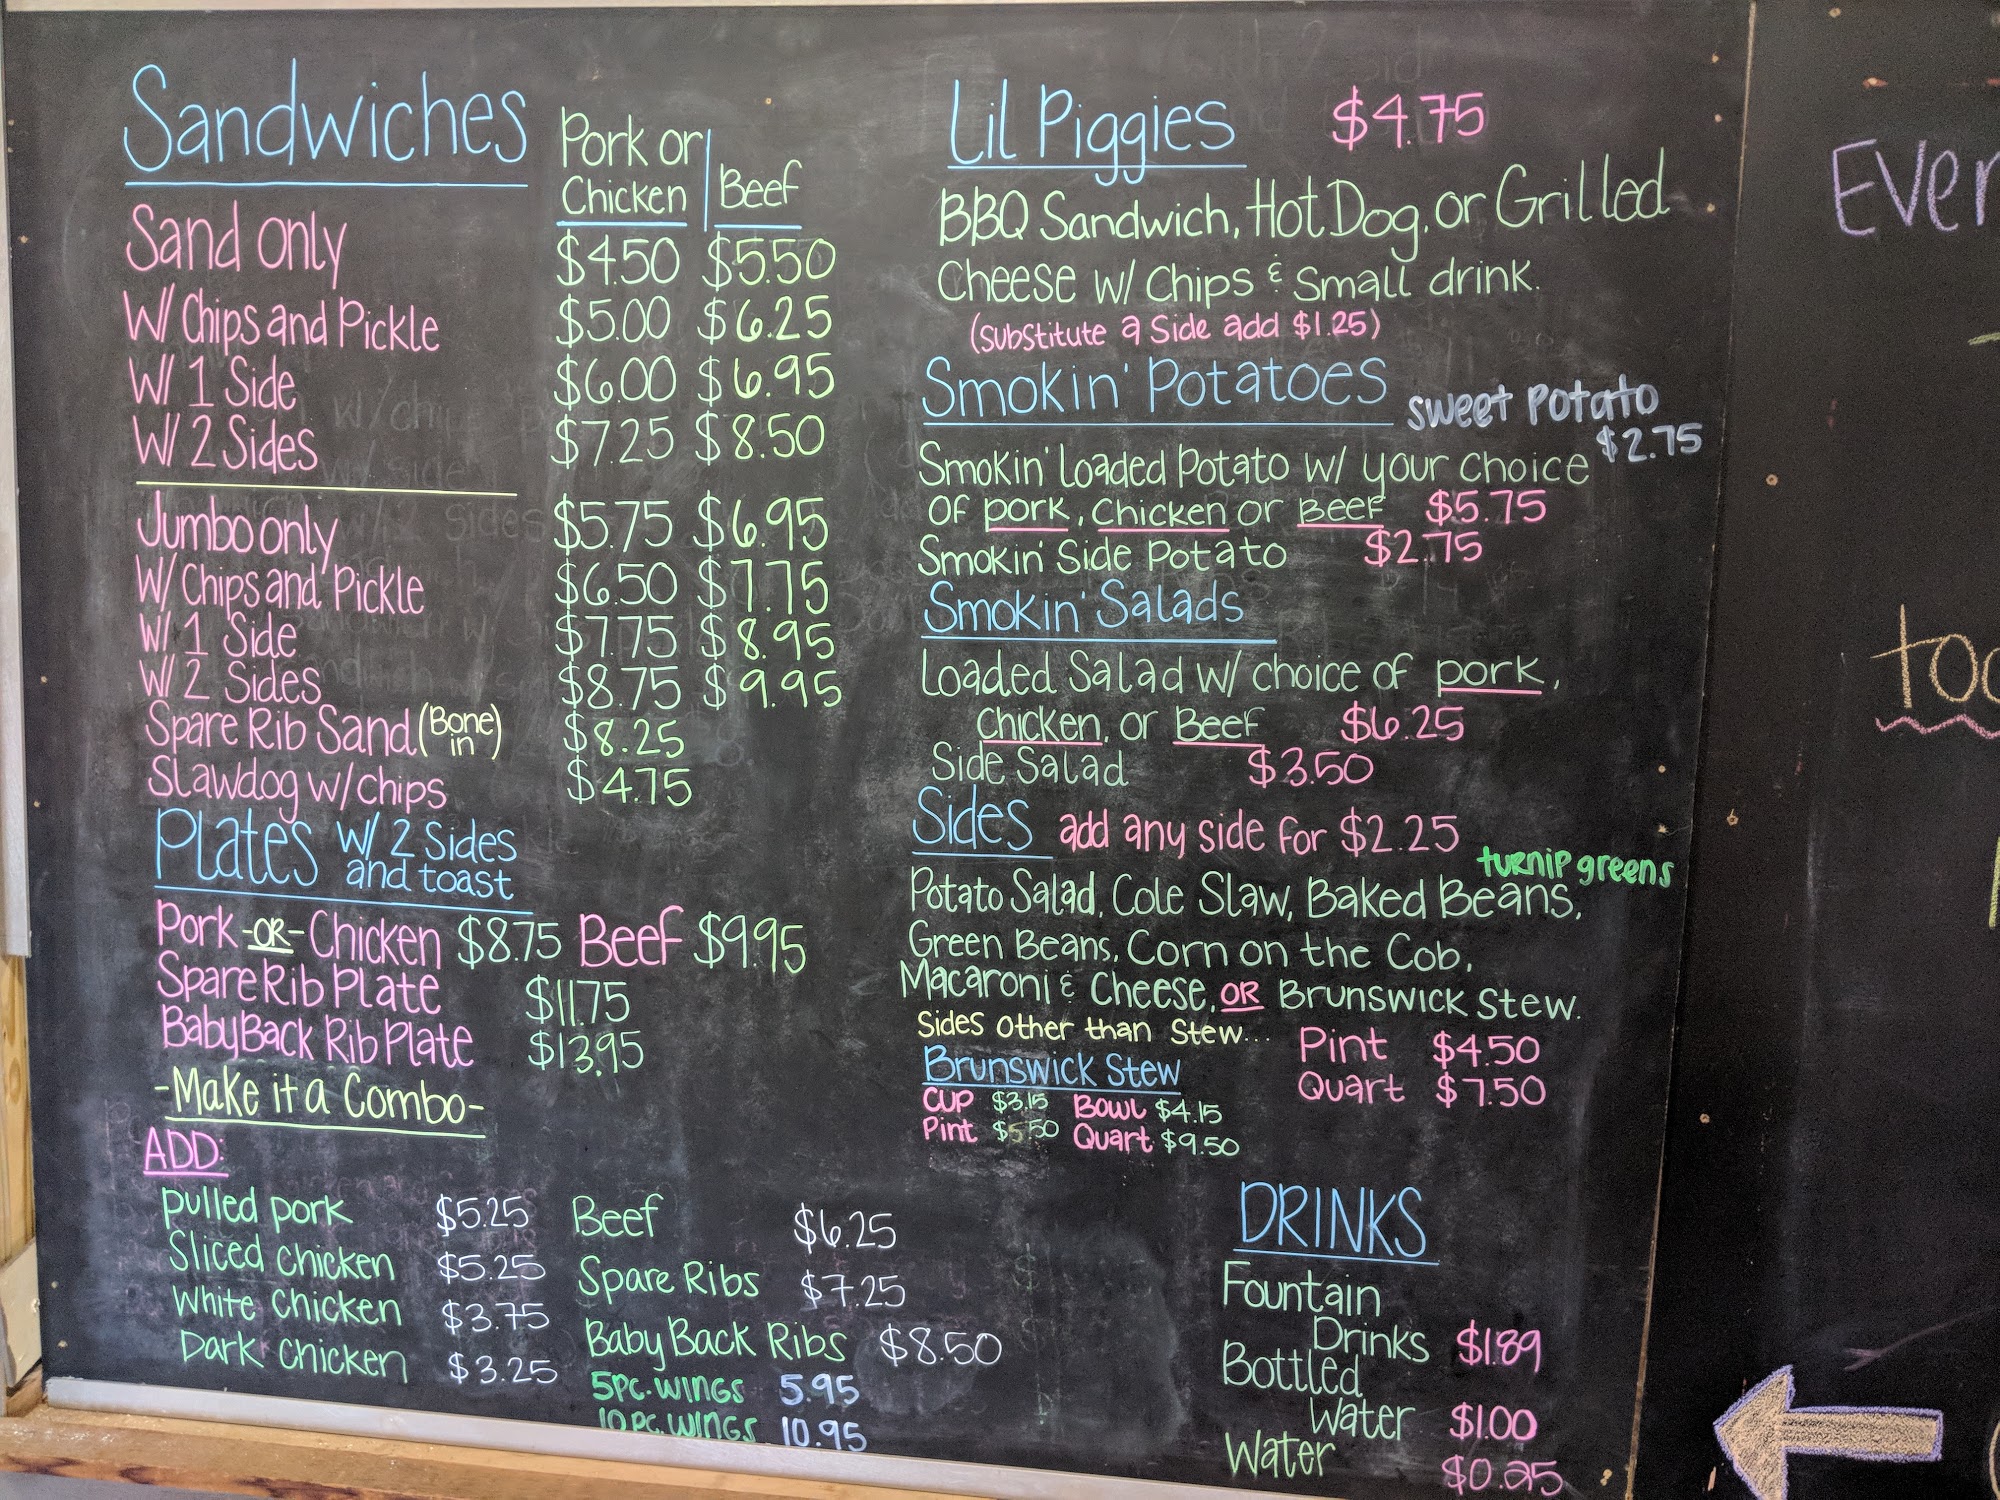 Sandwiches
Pork or Chicken | Beef
Sand only $4.50 $5.50
W/ Chips and Pickle $5.00 $6.25
W/ 1 Side $6.00 $6.95
W/ 2 Sides $7.25 $8.50
Jumbo only $5.75 $6.95
W/ Chips and Pickle $6.50 $7.75
W/ 1 Side $7.75 $8.95
W/ 2 Sides $8.75 $9.95
Spare Rib Sand (Bone in) $8.25
Slawdog w/ chips $4.75
Plates w/ 2 Sides and toast
Pork -OR- Chicken $8.75 Beef $9.95
Spare Rib Plate $11.75
Baby Back Rib Plate $13.95
-Make it a Combo-
ADD:
pulled pork $5.25
Sliced Chicken $5.25
White Chicken $3.75
Dark Chicken $3.25
Beef $6.25
Spare Ribs $7.25
Baby Back Ribs $8.50
5pc. wings 5.95
10 pc. wings 10.95
Lil Piggies $4.75
BBQ Sandwich, Hot Dog, or Grilled
Cheese w/ Chips & Small drink.
(substitute a Side add $1.25)
Smokin' Potatoes
sweet potato
$2.75
Smokin' Loaded Potato w/ your choice
of pork, Chicken or Beef $5.75
Smokin' Side Potato $2.75
Smokin' Salads
Loaded Salad w/ choice of pork,
Chicken, or Beef $6.25
Side Salad $3.50
Sides add any side for $2.25
turnip greens
Potato Salad, Cole Slaw, Baked Beans,
Green Beans, Corn on the Cob,
Macaroni & Cheese, OR Brunswick Stew.
Sides other than Stew... Pint $4.50
Quart $7.50
Brunswick Stew
Cup $3.15 Bowl $4.15
Pint $5.50 Quart $9.50
DRINKS
Fountain
Drinks $1.89
Bottled
Water $1.00
Water $0.25